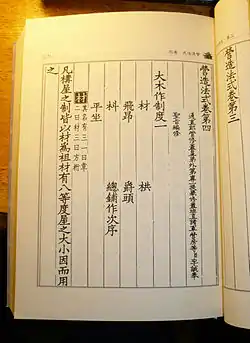 營造法式卷第四
通直郎管修蓋皇弟外第專一提舉修蓋班直諸軍營房等臣李誡奉
聖旨編修
大木作制度一
材 栱
飛昂 爵頭
枓 總鋪作次序
平坐
材 其名有三一曰章
二曰材三曰方桁
凡構屋之制皆以材爲祖材有八等度屋之大小因而用
之
營造法式卷第三